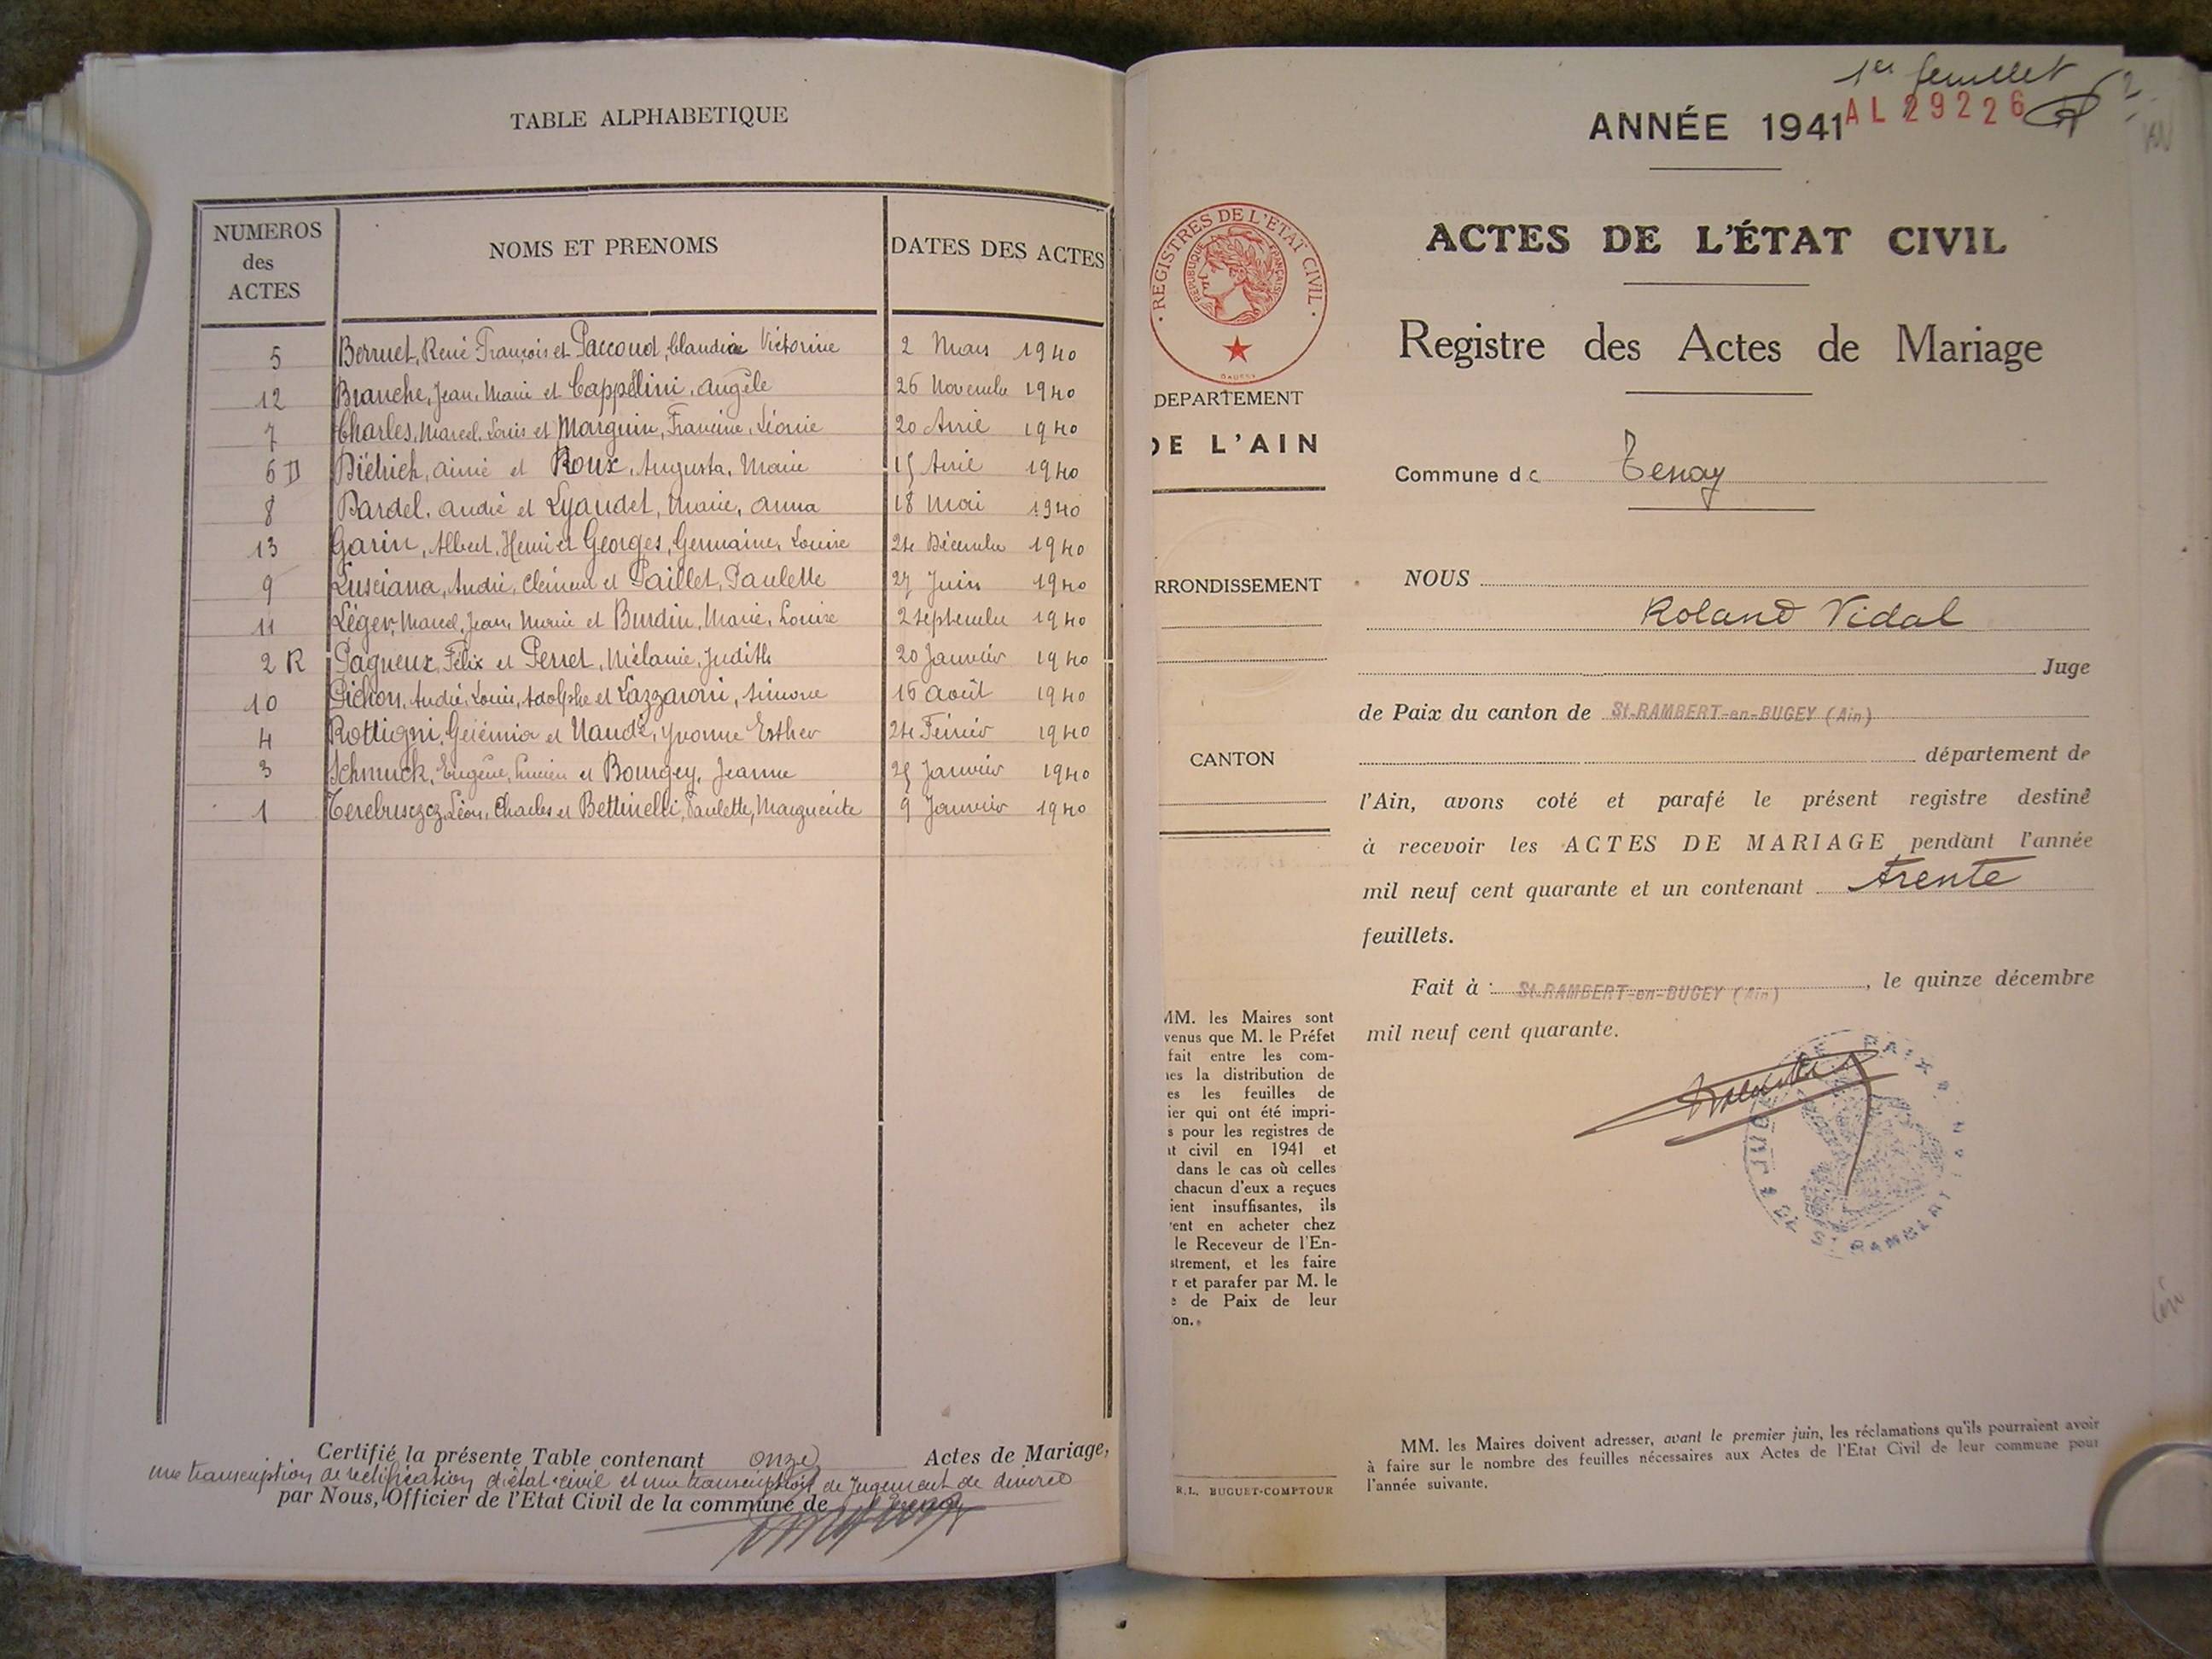 TABLE ALPHABETIQUE
NUMEROS
des
ACTES
NOMS ET PRENOMS
DATES DES ACTES
5 Berruet, René François et Paccoud, Claudia Victorine 2 Mars 1940
12 Branche, Jean, Marie et Cappélini, Angèle 26 Novembre 1940
7 Charles, Marcel, Louis et Marguin, Francine, Léonie 20 Avril 1940
6 D Diétrich, Aimé et Roux, Augusta, Marie 15 Avril 1940
8 Dardel, André et Lyaudet, Marie, Anna 18 Mai 1940
13 Garin, Albert, Henri et Georges, Germaine, Louise 24 Décembre 1940
9 Lusciana, André, Clément et Paillet, Paulette 27 Juin 1940
11 Léger, Marcel, Jean, Marie et Burdin, Marie, Louise 2 Septembre 1940
2 R Pagneux, Félix et Perret, Mélanie, Judith 20 Janvier 1940
10 Pichon, André, Louis, Adolphe et Lazzaroni, Simone 16 Août 1940
4 Rottigni, Gérémia et Naudé, Yvonne Esther 24 Février 1940
3 Schmuck, Eugène, Lucien et Bourgey, Jeanne 25 Janvier 1940
1 Terebrusczcz, Léon, Charles et Bettinelli, Paulette, Marguerite 9 Janvier 1940
Certifié la présente Table contenant onze Actes de Mariage,
une transcription de rectification d'état civil et une transcription de Jugement de divorce
par Nous, Officier de l'Etat Civil de la commune de Tenay
1er feuillet
ANNÉE 1941
AL 29226
REGISTRES DE L'ÉTAT CIVIL
REPUBLIQUE FRANÇAISE
ACTES DE L'ÉTAT CIVIL
Registre des Actes de Mariage
DEPARTEMENT
DE L'AIN
Commune de Tenay
RRONDISSEMENT
NOUS
Roland Vidal
Juge
de Paix du canton de St-RAMBERT-en-BUGEY (Ain)
CANTON
département de
l'Ain, avons coté et parafé le présent registre destiné
à recevoir les ACTES DE MARIAGE pendant l'année
mil neuf cent quarante et un contenant trente
feuillets.
Fait à : St-RAMBERT-en-BUGEY (Ain), le quinze décembre
mil neuf cent quarante.
MM. les Maires sont
venus que M. le Préfet
fait entre les com-
nes la distribution de
es les feuilles de
ier qui ont été impri-
s pour les registres de
at civil en 1941 et
dans le cas où celles
chacun d'eux a reçues
ient insuffisantes, ils
vent en acheter chez
le Receveur de l'En-
strement, et les faire
r et parafer par M. le
e de Paix de leur
on.
R.L. BUGUET-COMPTOUR
MM. les Maires doivent adresser, avant le premier juin, les réclamations qu'ils pourraient avoir
à faire sur le nombre des feuilles nécessaires aux Actes de l'Etat Civil de leur commune pour
l'année suivante.